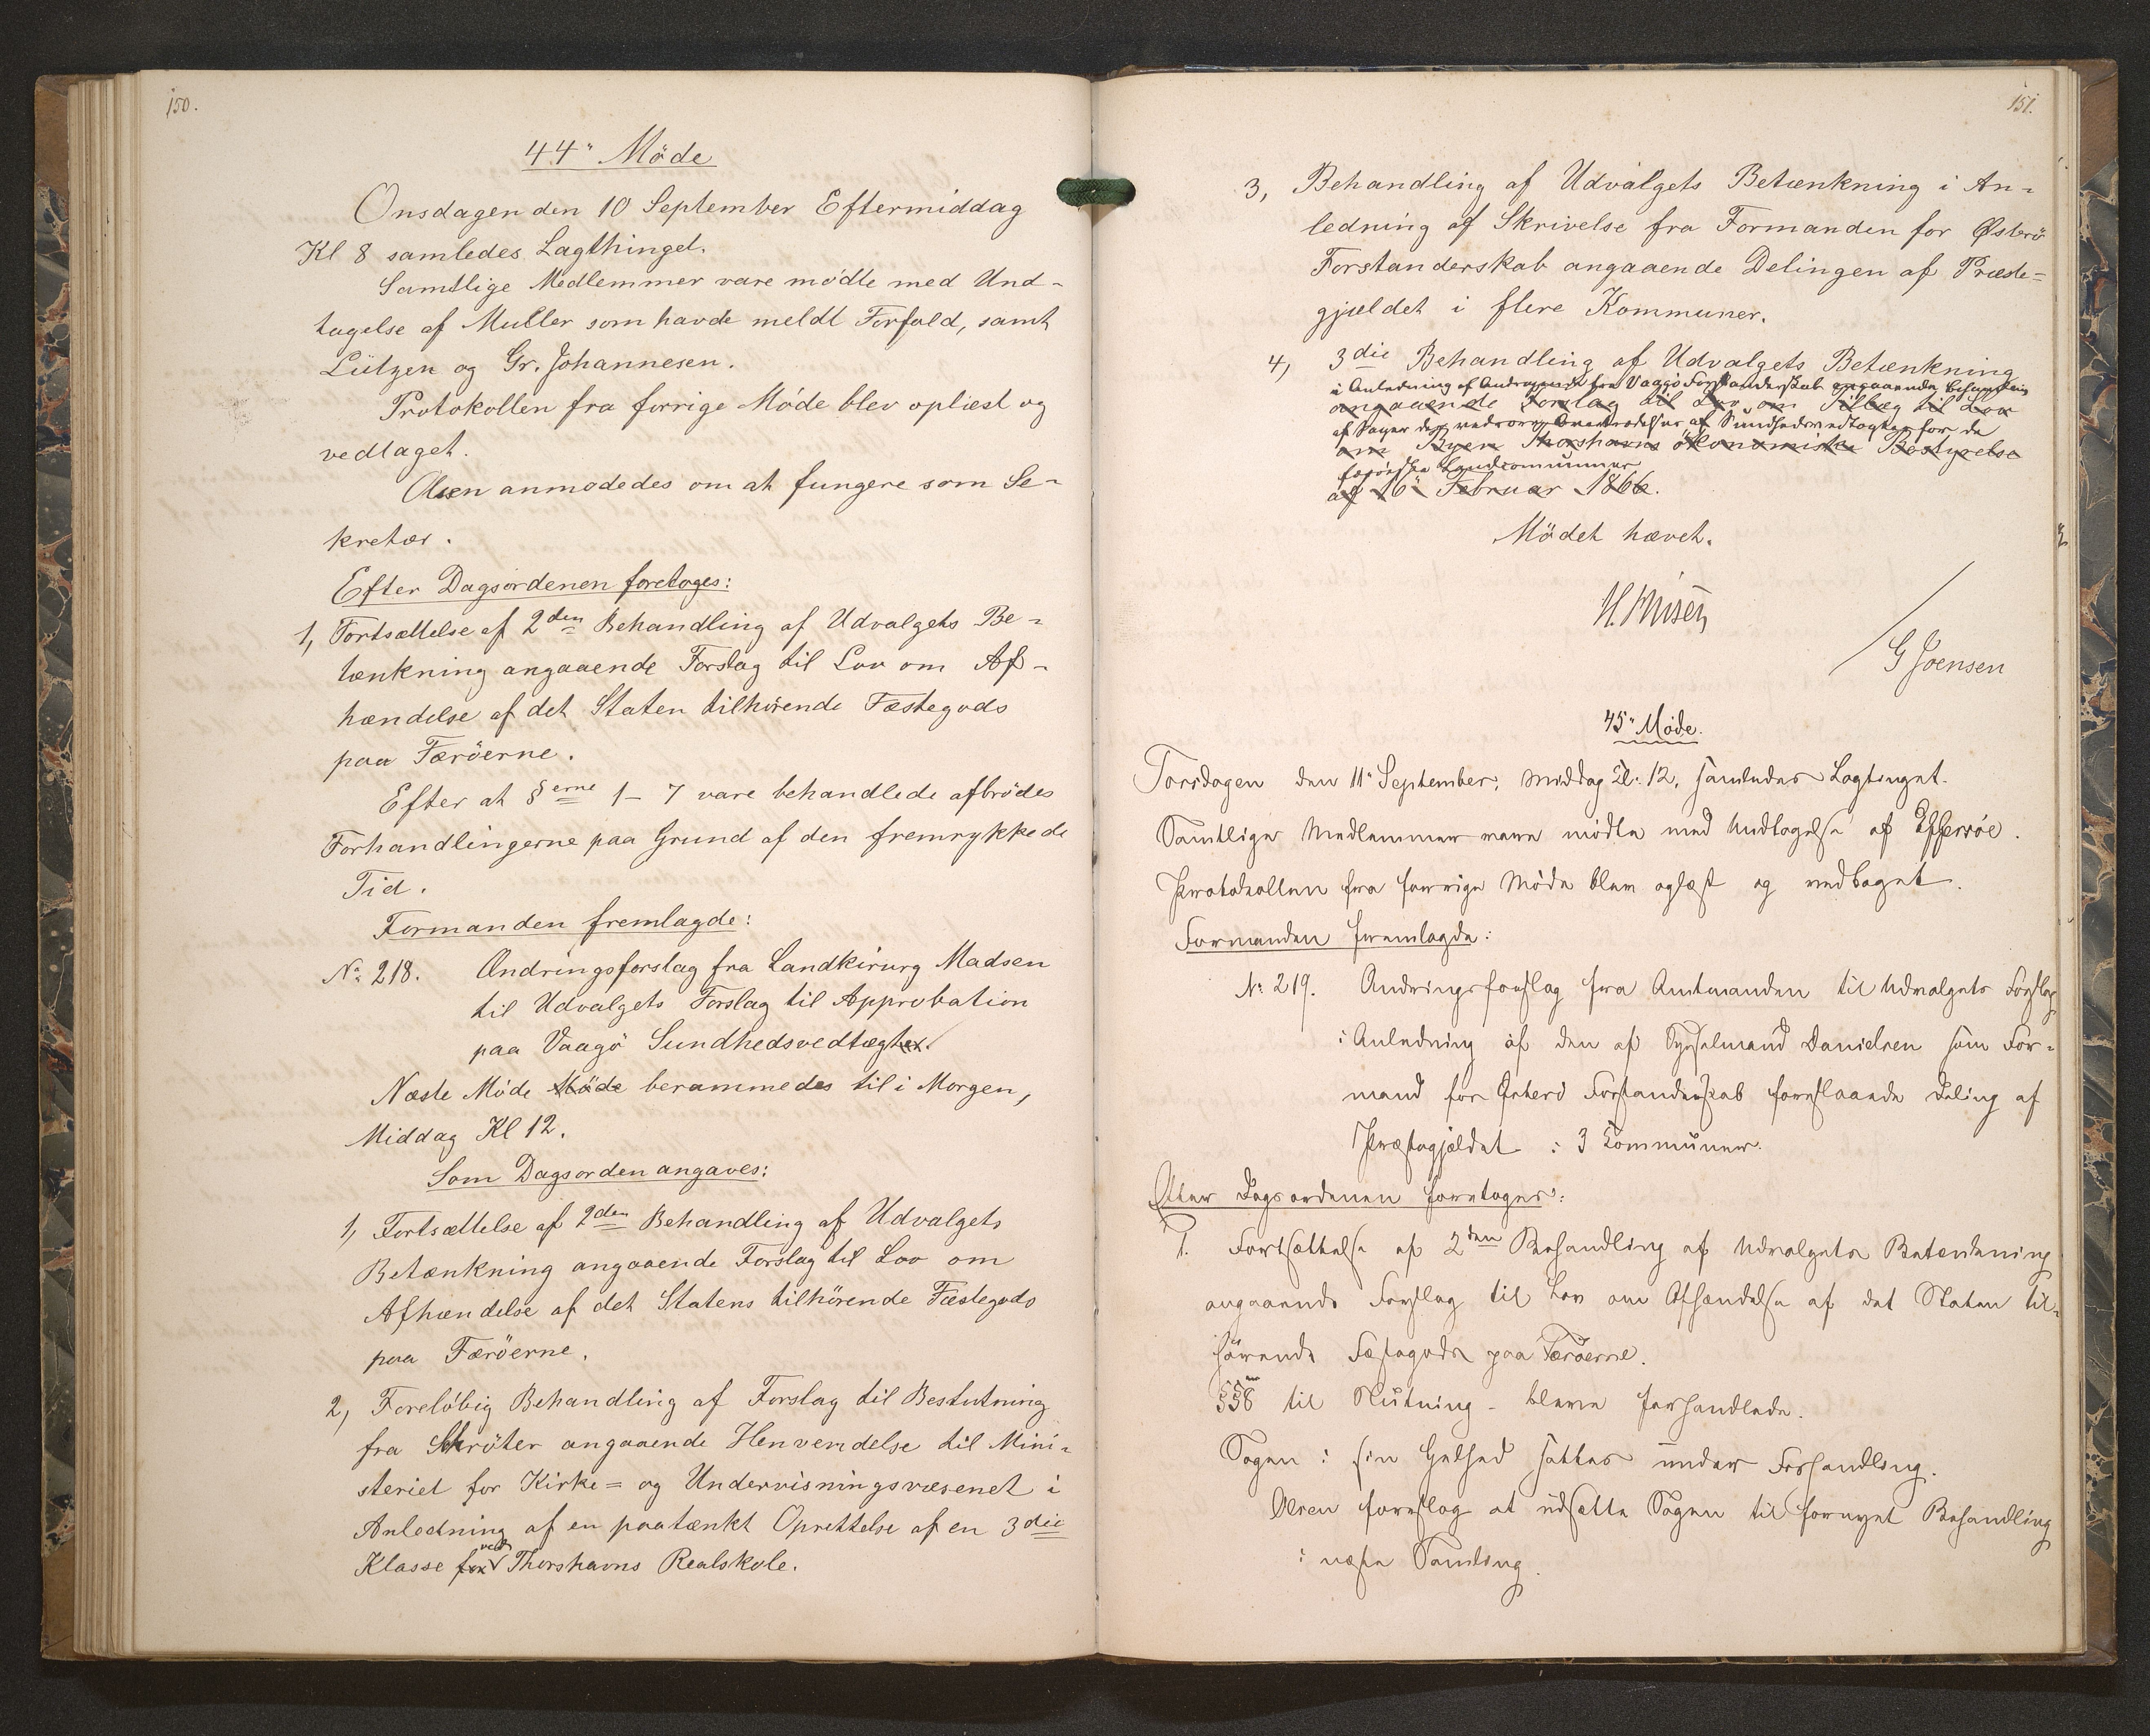 150.
44" Möde
Onsdagen den 10 September Eftermiddag
Kl 8 samledes Lagthinget.
Samtlige Medlemmer vare mödte med Und-
tagelse af Muller som havde meldt Forfald, samt
Lützen og Gr. Johannesen.
Protokollen fra forrige Möde blev oplæst og
vedtaget.
Olsen anmodedes om at fungere som Se-
kretær.
Efter Dagsordenen foretoges:
1, Fortsættelse af 2den Behandling af Udvalgets Be-
tænkning angaaende Forslag til Lov om Af-
hændelse af det Staten tilhörende Fæstegods
paa Færöerne.
Efter at §erne 1-7 vare behandlede afbrödes
Forhandlingerne paa Grund af den fremrykkede
Tid.
Formanden fremlagde:
No 218. Ændringsforslag fra Landkirurg Madsen
til Udvalgets Forslag til Approbation
paa Vaagö Sundhedsvedtægter.
Næste Möde Möde berammedes til i Morgen,
Middag Kl 12.
Som Dagsorden angaves:
1, Fortsættelse af 2den Behandling af Udvalgets
Betænkning angaaende Forslag til Lov om
Afhændelse af det Statens tilhörende Fæstegods
paa Færöerne.
2, Forelöbig Behandling af Forslag til Beslutning
fra Schröter angaaende Henvendelse til Mini-
steriet for Kirke= og Undervisningsvæsenet i
Anledning af en paatænkt Oprettelse af en 3die
ved
Klasse for Thorshavns Realskole.
151.
3, Behandling af Udvalgets Betænkning i An-
ledning af Skrivelse fra Formanden for Østerö
Forstanderskab angaaende Delingen af Præste=
gjældet i flere Kommuner.
4, 3die Behandling af Udvalgets Betænkning
i Anledning af Andragende fra Vaagö Forstanderskab angaaende
angaaende Forslag til Lov om Tillæg til Lov
af Sager der vedrøre Overtrædelser af Sundhedsvedtægter for de
om Byen Thorshavns ökonomiske Bestyrelse
færöiske Landcommuner
af 16" Februar 1866.
Mödet hævet.
G Joensen
45" Møde.
Torsdagen den 11" September, Middag Kl. 12, samledes Lagtinget.
Samtlige Medlemmer vare mödte med Undtagelse af Effersöe.
Protokollen fra forrige Möde blev oplæst og vedtaget.
Formanden fremlagde:
No 219. Ændringsforslag fra Amtmanden til Udvalgets Forslag
i Anledning af den af Sysselmand Danielsen som For-
mand for Østerö Forstanderskab foreslaaede Deling af
Præstegjældet i 3 Kommuner.
Efter Dagsordenen foretoges:
1. Fortsættelse af 2den Behandling af Udvalgets Betænkning
angaaende Forslag til Lov om Afhændelse af det Staten til-
hörende Fæstegods paa Færöerne.
§§8 til Slutning - bleve forhandlede.
Sagen i sin Helhed sattes under Forhandling.
Olsen foreslog at udsætte Sagen til fornyet Behandling
i næste Samling.